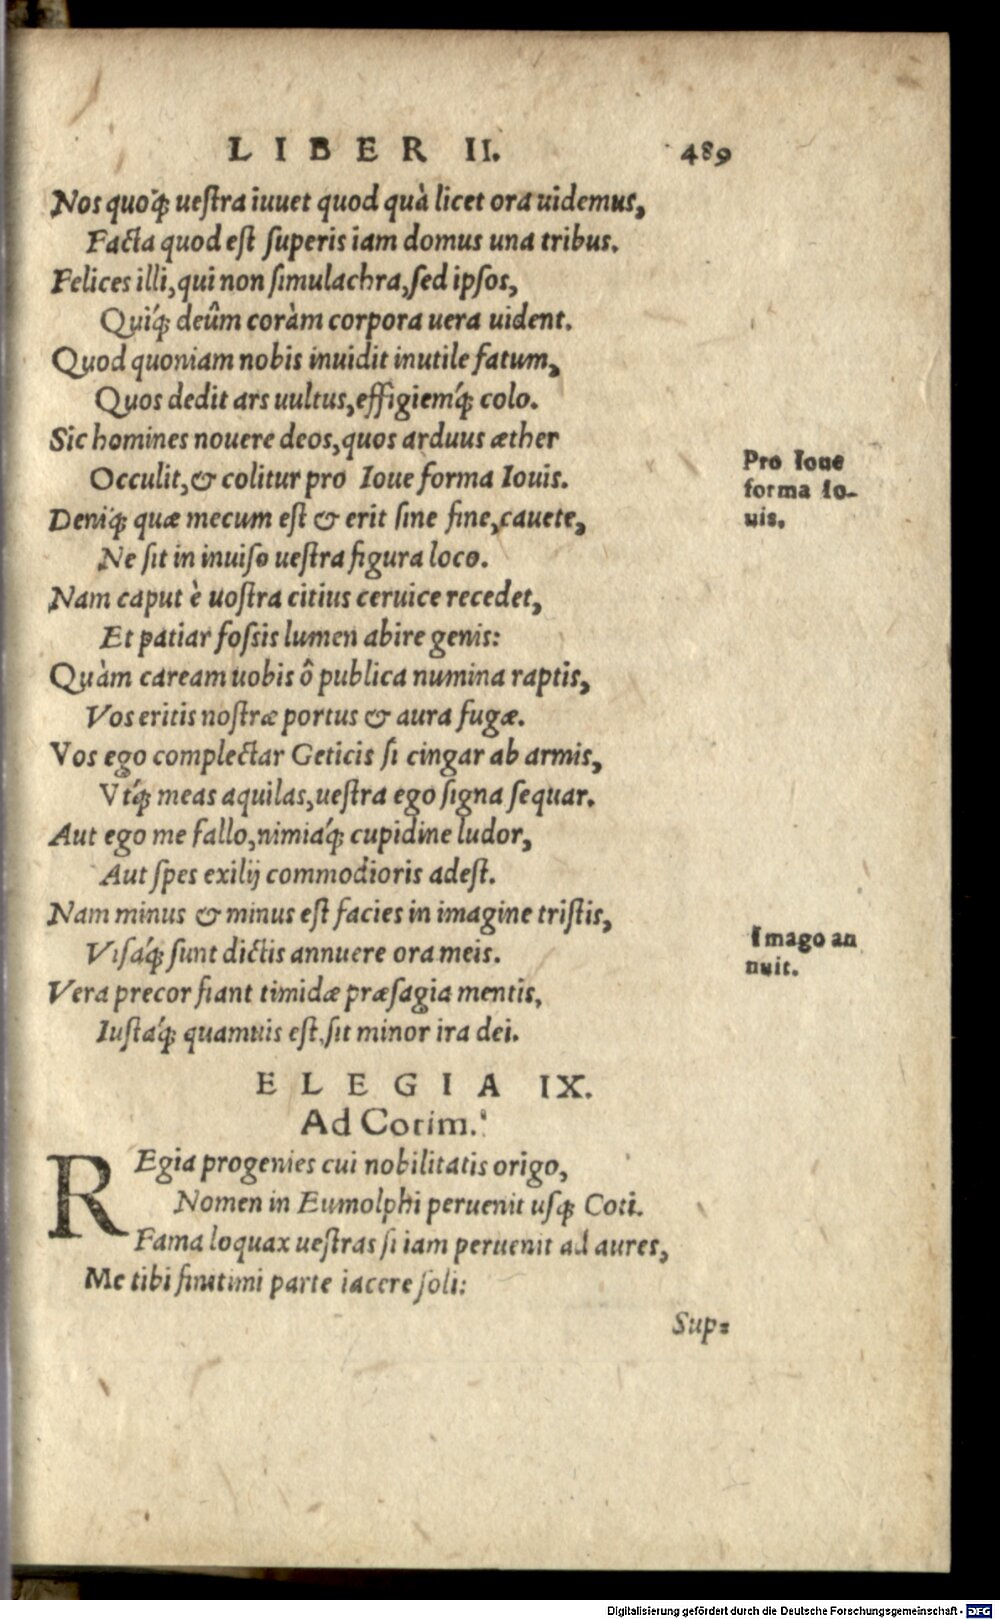 LIBER II. 489
Nos quoq́; uestra iuuet quod quà licet ora uidemus,
Facta quod est superis iam domus una tribus.
Felices illi, qui non simulachra, sed ipsos,
Quiq́; deûm coràm corpora uera uident.
Quod quoniam nobis inuidit inutile fatum,
Quos dedit ars uultus, effigiemq́; colo.
Sic homines nouere deos, quos arduus æther
Occulit, & colitur pro Ioue forma Iouis.
Pro Ioue
forma Io-
uis.
Deniq́; quæ mecum est & erit sine fine, cauete,
Ne sit in inuiso uestra figura loco.
Nam caput è uostra citius ceruice recedet,
Et patiar fossis lumen abire genis:
Quàm caream uobis ô publica numina raptis,
Vos eritis nostræ portus & aura fugæ.
Vos ego complectar Geticis si cingar ab armis,
Vtq́; meas aquilas, uestra ego signa sequar.
Aut ego me fallo, nimiaq́; cupidine ludor,
Aut spes exilij commodioris adest.
Nam minus & minus est facies in imagine tristis,
Visaq́; sunt dictis annuere ora meis.
Imago an
nuit.
Vera precor fiant timidæ præsagia mentis,
Iustaq́; quamuis est, sit minor ira dei.
ELEGIA IX.
Ad Cotim.
REgia progenies cui nobilitatis origo,
Nomen in Eumolphi peruenit usq; Coti.
Fama loquax uestras si iam peruenit ad aures,
Me tibi finitimi parte iacere soli:
Sup=
Digitalisierung gefördert durch die Deutsche Forschungsgemeinschaft - DFG